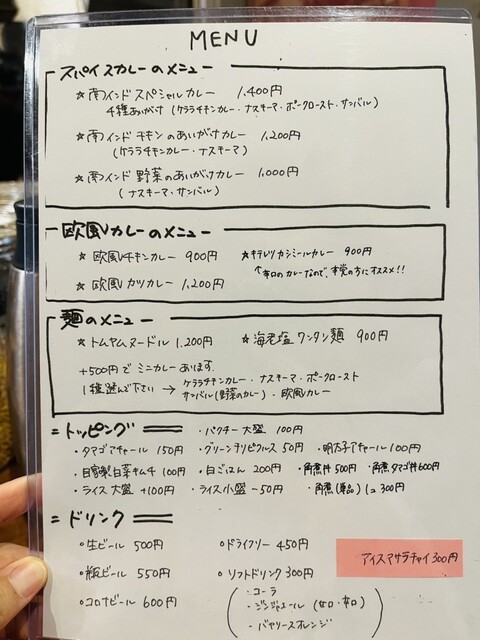 MENU
スパイスカレーのメニュー
☆南インドスペシャルカレー 1,400円
4種あいがけ (ケララチキンカレー・ナスキーマ・ポークロースト・サンバル)
☆南インド チキンのあいがけカレー 1,200円
(ケララチキンカレー・ナスキーマ)
☆南インド 野菜のあいがけカレー 1,000円
(ナスキーマ・サンバル)
欧風カレーのメニュー
☆欧風チキンカレー 900円 ☆キテレツカシミールカレー 900円
↑辛口のカレーなので、本党の方にオススメ!!
☆欧風カツカレー 1,200円
麺のメニュー
☆トムヤムヌードル 1,200円 ☆海老塩ワンタン麺 900円
+500円で ミニカレーあります。
1種選んで下さい → ケララチキンカレー・ナスキーマ・ポークロースト
サンバル(野菜のカレー)・欧風カレー
=トッピング= ・パクチー大盛 100円
・タマゴアチャール 150円 ・グリーンチリピクルス 50円 ・明太子アチャール 100円
・自家製白菜キムチ 100円 ・白ごはん 200円 ・角煮丼 500円 ・角煮タマゴ丼 600円
・ライス大盛 +100円 ・ライス小盛 -50円 ・角煮(単品) 300円
=ドリンク=
・生ビール 500円 ・ドライフリー 450円
アイスマサラチャイ 300円
・瓶ビール 550円 ・ソフトドリンク 300円
・コロナビール 600円
・コーラ
・ジンジャエール (甘口・辛口)
・バヤリースオレンジ